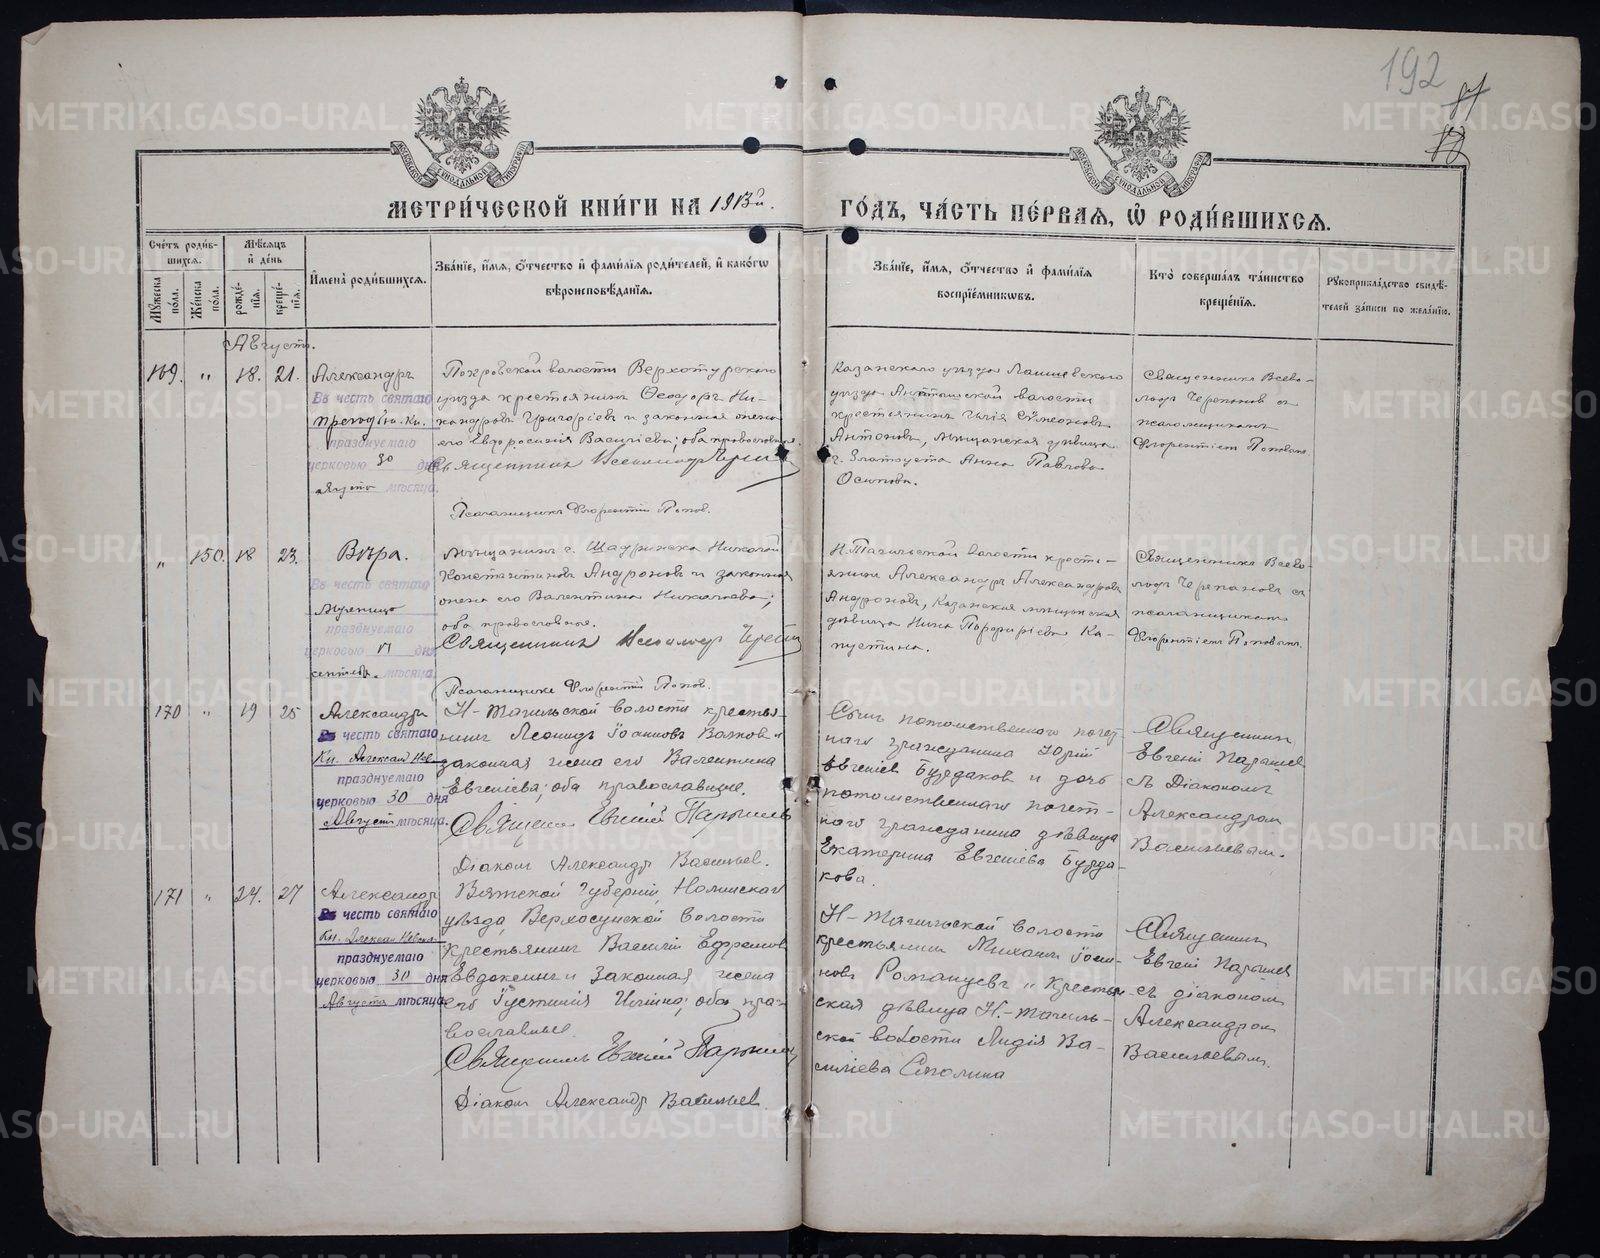 192
МЕТРИ́ЧЕСКОЙ КНИ́ГИ НА 1913й.
ГО́ДЪ, ЧА́СТЬ ПЕ́РВАЯ, Ѽ РОДИ́ВШИХСЯ.
Сче́тъ роди́в-
шихся.
Мѣ́сяцъ
и́ де́нь
Му́жеска по́ла.
Же́нска по́ла.
рожде́-
нія.
креще́-
нія.
И́мена̀ роди́вшихся.
Зва́ніе, и́мя, о́тчество и́ фами́лія роди́телей, и́ како́гѡ
вѣроисповѣ́данія.
Зва́ніе, и́мя, о́тчество и́ фами́лія
воспріе́мникѡвъ.
Кто̀ соверша́лъ та́инство
креще́нія.
Рукоприкла́дство свидѣ́-
телей за́писи по жела́нію.
Августъ.
169. " 18. 21.
Александръ
Въ честь святаго
празднуемаго
церковью 30 дня
августа мѣсяца.
Покровской волости Верхотурскаго
уѣзда крестьянинъ Ѳеодоръ Ни-
кандровъ Григорьевъ и законная жена
его Евфросинія Васильева; оба православные.
Священникъ Всеволодъ
Псаломщикъ Флорентій Попов.
Казанскаго уѣзда Лаишевскаго
уѣзда волости
крестьянинъ Илія Сѵмеоновъ
Антоновъ, мѣщанская дѣвица
г. Златоуста Анна Павлова
Осипова.
Священникъ Всево-
лодъ Черепановъ съ
псаломщикомъ
Флорентіемъ Поповымъ.
" 150. 18 23.
Вѣра.
Въ честь святаго
мученицы
празднуемаго
церковью 17 дня
сентября мѣсяца.
мѣщанинъ г. Шадринска Николай
Константиновъ Андроновъ и законная
жена его Валентина Николаева;
оба православные.
Священникъ Всеволодъ
Псаломщикъ Флорентій Попов.
Н.Тагильской волости кресть-
янинъ Александръ Александровъ
Андроновъ, Казанская мѣщанская
дѣвица Нина Порфиріева Ка-
пустина.
Священникъ Всево-
лодъ Черепановъ съ
псаломщикомъ
Флорентіемъ Поповымъ.
170 " 19 25
Александръ
Въ честь святаго
Кн. Александ Нев.
празднуемаго
церковью 30 дня
Август мѣсяца.
Н-Тагильской волости крестья-
нинъ Леонидъ Іоанновъ Волков и
законная жена его Валентина
Евгеніева; оба православные.
Священникъ Евгеній
Діаконъ Александръ Васильев.
Сынъ потомственнаго почет-
наго гражданина Юрій
Евгеніев Бурдаков и дочь
потомственнаго почет-
наго гражданина дѣвица
Екатерина Евгеніева Бурда-
кова.
Священникъ
Евгеній
съ Діакономъ
Александромъ
Васильевымъ.
171 " 24. 27
Александръ
Въ честь святаго
Кн. Александ Невск.
празднуемаго
церковью 30 дня
Августа мѣсяца
Вятской губерніи, Нолинскаго
уѣзда, Верхосунской волости
крестьянинъ Василій Ефремов
Евдокимъ и законная жена
его Іустинія Ильина; оба пра-
вославные.
Священникъ Евгеній
Діаконъ Александръ Васильев.
Н-Тагильской волости
крестьянинъ Михаилъ Іоан-
новъ Романцевъ и крестьян-
ская дѣвица Н.-Тагиль-
ской волости Лидія Ва-
силіева
Священникъ
Евгеній
съ діакономъ
Александромъ
Васильевымъ.
METRIKI.GASO-URAL.RU